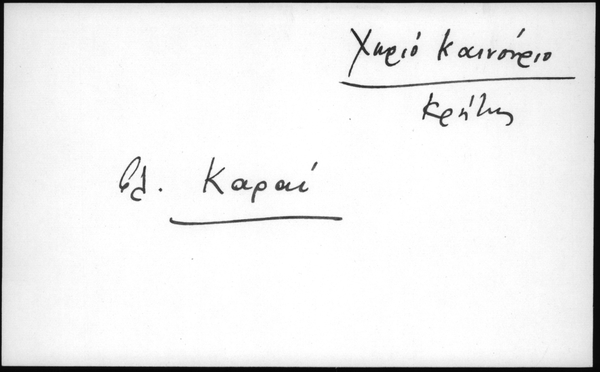 Χωριό Καινούριο
Κρήτης
βλ. Καραί